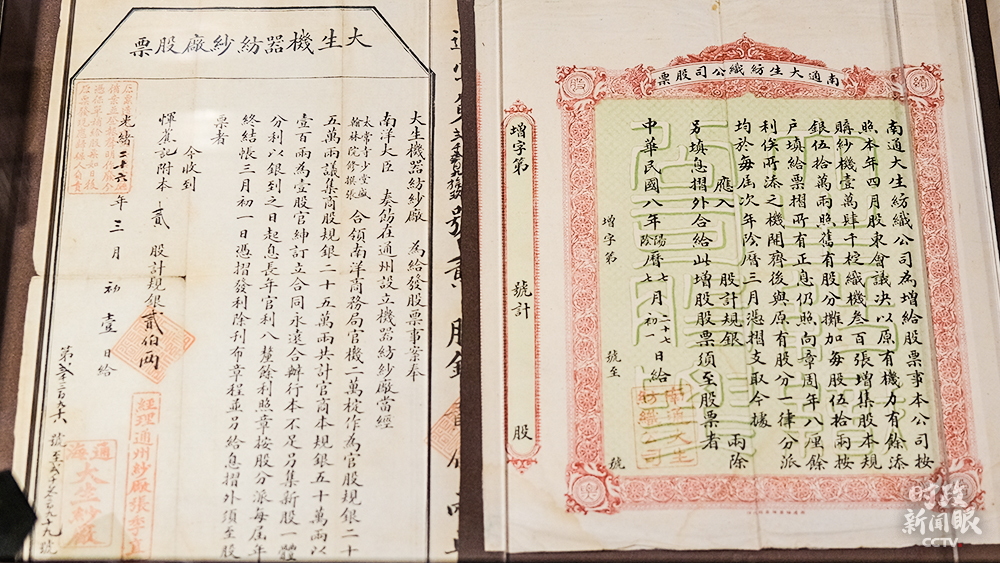 大生機器紡紗廠股票
大生機器紡紗廠 為給發股票事案奉
南洋大臣 奏飭在通州設立機器紡紗廠當經
太常寺少堂盛
翰林院修撰張
合領南洋商務局官機二萬梃作為官股規銀二十
五萬兩議集商股規銀二十五萬兩共計官商本規銀五十萬兩以
壹百兩為壹股官紳訂立合同永遠合辦行本不足另集新股一體
分利以銀到之日起息長年官利八釐餘利照章按股分派每屆年
終結帳三月初一日憑摺發利除刊布章程並另給息摺外須至股
票者
今收到
惲莐記附本 貳 股計規銀貳伯兩
光緒二十六年三月 初 壹 日給
經理通州紗廠張季直
通海
大生紗廠
南通大生紡織公司股票
南通大生紡織公司為增給股票事本公司按
照本年四月股東會議決以原有機力有餘添
購紗機壹萬肆千梃織機叁百張增集股本規
銀伍拾萬兩照舊有股分攤加每股伍拾兩按
戶填給票摺所有正息仍照向章周年八厘餘
利俟所添之機開齊後與原有股分一律分派
均於每屆次年陰曆三月憑摺支取今據
應入 股計規銀 兩除
另填息摺外合給此增股票須至股票者
中華民國八年陽曆七月二十七日給
陰 七 初一
南通大生
紡織公司
增字第 號計 股
增字第 號至 號
时政
新闻眼
CCTV